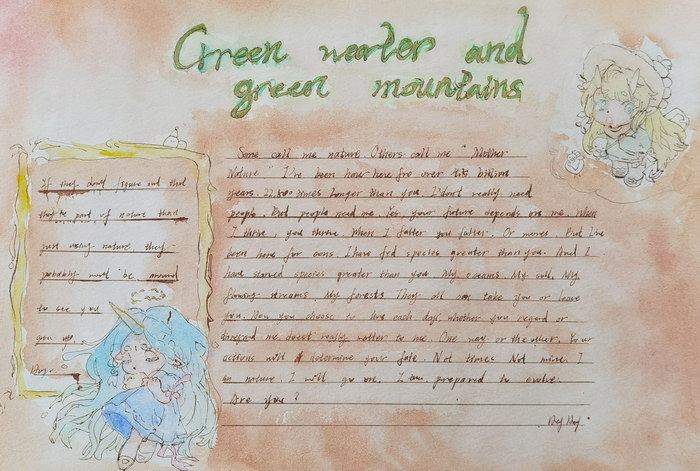 Green warter and
green mountains
If they don't figure out that
they're part of nature than
just using nature they
probably won't be around
to see you
you up.
Some call me nature. Others call me "Mother
Nature" I've been here for over billion
years. 22.500 times longer than you I don't really need
people. But people need me. Yes, your future depends on me. When
I thrive, you thrive. When I falter you falter. Or worse. But I've
been here for eons. I have fed species greater than you. And I
have starved species greater than you. My oceans. My soil. My
flowing streams. My forests They all can take you or leave
you. How you choose to live each day. whether you regard or
disregard me. doesn't really matter to me. One way or the other. Your
actions will determine your fate. Not times Not mine. I
am nature. I will go on. I am prepared to evolve.
Are you?